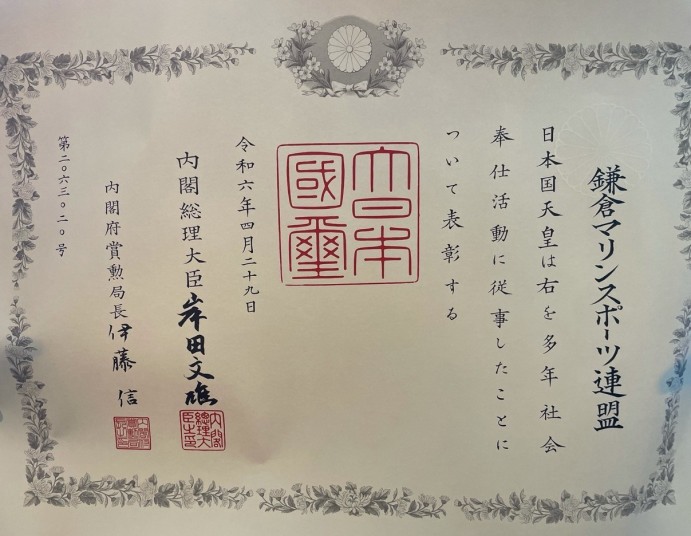 鎌倉マリンスポーツ連盟
日本国天皇は右を多年社会
奉仕活動に従事したことに
ついて表彰する
大日本
國璽
令和六年四月二十九日
内閣総理大臣岸田文雄
内閣総理大臣之印
内閣府賞勲局長伊藤信
第二〇六三〇二〇号